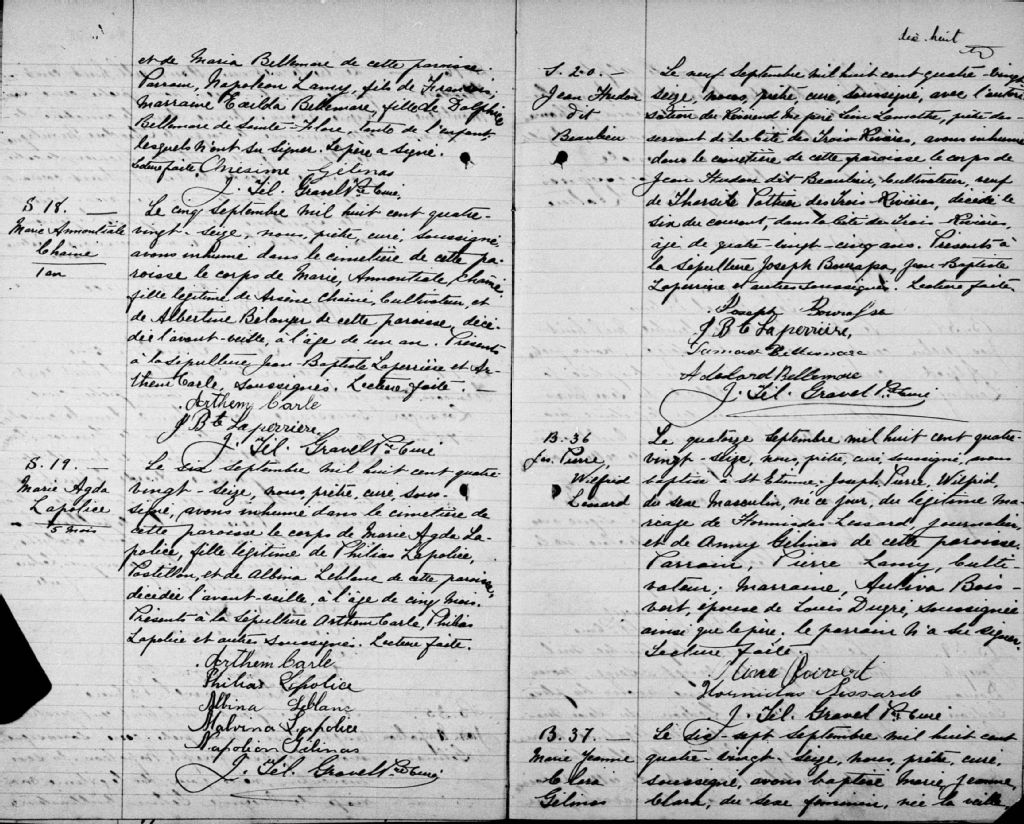 et de Maria Bellemare de cette paroisse.
Parrain, Napoléon Lamy, fils de
Marraine Exilda Bellemare, fille de Dolphis
Bellemare de Sainte-Flore, tante de l'enfant,
lesquels n'ont su signer. Le père a signé.
Lecture faite Onésime Gélinas
J. Tél. Gravel Ptre Curé
S. 18. —
Marie Annontiate
Chaîné
1 an
Le cinq Septembre mil huit cent quatre-
vingt-seize, nous, prêtre, curé, soussigné,
avons inhumé dans le cimetière de cette pa-
roisse le corps de Marie, Annontiate, Chaîné,
fille légitime de Arsène Chaîné, Cultivateur, et
de Albertine Bélanger de cette paroisse, décé-
dée l'avant-veille, à l'âge de un an. Présents
à la sépulture, Jean-Baptiste Laperrière et Ar-
them Carle, soussignés. Lecture faite.
Arthem Carle
J Bte Laperriere,
J. Tél. Gravel Ptre Curé
S. 19. —
Marie Agda
Lapolice
5 mois
Le six Septembre mil huit cent quatre-
vingt-seize, nous, prêtre, curé, sous-
signé, avons inhumé dans le cimetière de
cette paroisse le corps de Marie Agda La-
police, fille légitime de Philias Lapolice,
Postillon, et de Albina Leblanc de cette paroisse,
décédée l'avant-veille, à l'âge de cinq mois.
Présents à la sépulture Arthem Carle, Philias
Lapolice et autres soussignés. Lecture faite.
Arthem Carle
Philias Lapolice
Albina Leblanc
Malvina Lapolice
Napoléon Gélinas
J. Tél. Gravel Ptre Curé
dix-huit
S. 20. —
Jean Hudon
dit
Beaulieu
Le neuf Septembre mil huit cent quatre-vingt
seize, nous, prêtre, curé, soussigné, avec l'autori-
sation du Révérend père Lamothe, prêtre des-
servant de la Cité des Trois-Rivières, avons inhumé
dans le cimetière de cette paroisse le corps de
Jean Hudon dit Beaulieu, Cultivateur, veuf
de Tharsile Pothier des Trois-Rivières, décédé le
six du courant, dans la Cité des Trois-Rivières,
âgé de quatre-vingt-cinq ans. Présents à
la sépulture Joseph Bourassa, Jean-Baptiste
Laperrière et autres soussignés. Lecture faite.
Joseph Bourassa
J Bte Laperrière,
Bellemare
Adelard Bellemare
J. Tél. Gravel Ptre Curé
B. 36
Jos. Pierre,
Wilfrid
Lessard
Le quatorze Septembre mil huit cent quatre-
vingt-seize, nous, prêtre, curé, soussigné, avons
baptisé à St Etienne, Joseph Pierre, Wilfrid,
du sexe masculin, né ce jour, du légitime ma-
riage de Hormidas Lessard, journalier,
et de Anny Gélinas de cette paroisse.
Parrain, Pierre Lamy, Culti-
vateur; Marraine, Bois-
vert, épouse de Louis Dugré, soussignée
ainsi que le père. Le parrain n'a su signer.
Lecture faite.
Boisvert
Hormidas Lessard
J. Tél. Gravel Ptre Curé
B. 37. —
Marie Jeanne
Clara
Gélinas
Le dix-sept Septembre mil huit cent
quatre-vingt-seize, nous, prêtre, curé,
soussigné, avons baptisé Marie, Jeanne,
Clara, du sexe féminin, née la veille,